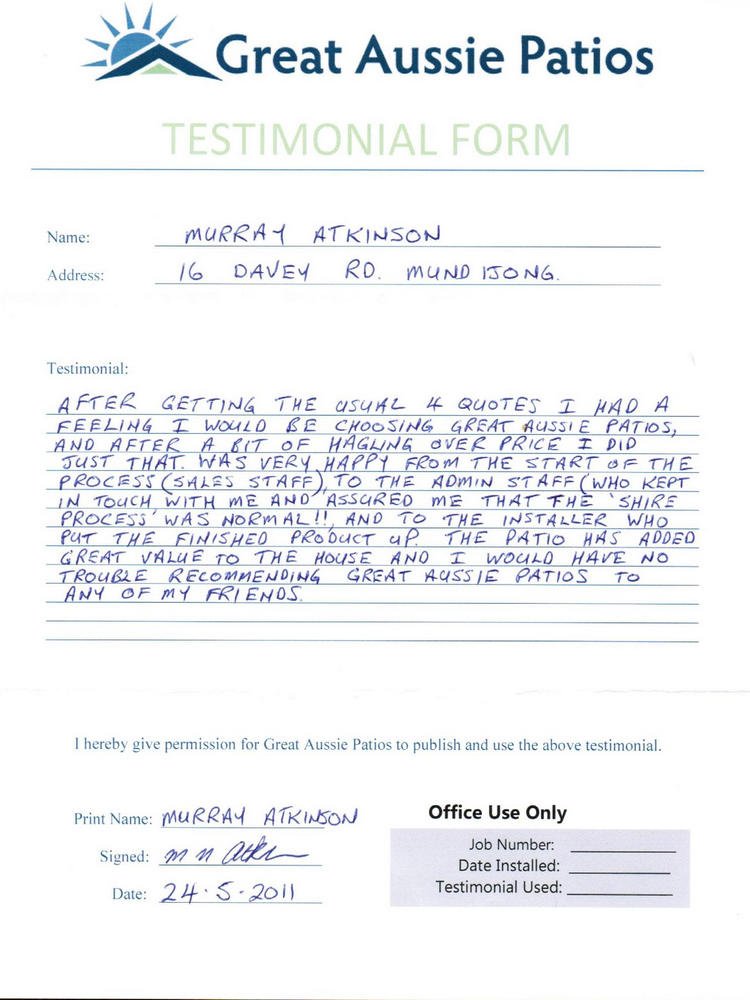 Great Aussie Patios
TESTIMONIAL FORM
Name: MURRAY ATKINSON
Address: 16 DAVEY RD. MUNDIJONG.
Testimonial:
AFTER GETTING THE USUAL 4 QUOTES I HAD A
FEELING I WOULD BE CHOOSING GREAT AUSSIE PATIOS,
AND AFTER A BIT OF HAGLING OVER PRICE I DID
JUST THAT. WAS VERY HAPPY FROM THE START OF THE
PROCESS (SALES STAFF), TO THE ADMIN STAFF (WHO KEPT
IN TOUCH WITH ME AND ASSURED ME THAT THE 'SHIRE
PROCESS' WAS NORMAL!!, AND TO THE INSTALLER WHO
PUT THE FINISHED PRODUCT UP. THE PATIO HAS ADDED
GREAT VALUE TO THE HOUSE AND I WOULD HAVE NO
TROUBLE RECOMMENDING GREAT AUSSIE PATIOS TO
ANY OF MY FRIENDS.
I hereby give permission for Great Aussie Patios to publish and use the above testimonial.
Print Name: MURRAY ATKINSON
Signed: M N Atk
Date: 24.5.2011
Office Use Only
Job Number:
Date Installed:
Testimonial Used: